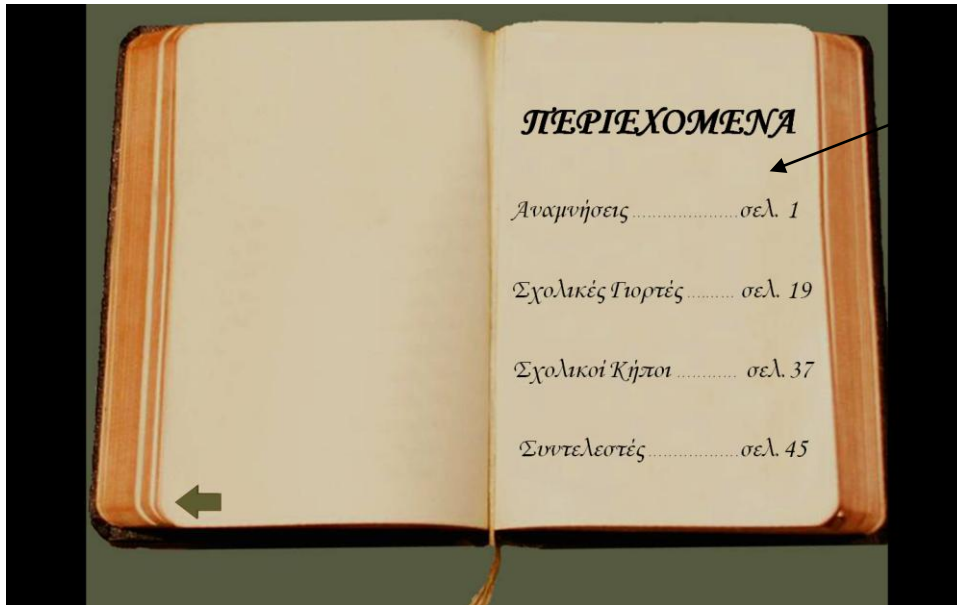 ΠΕΡΙΕΧΟΜΕΝΑ
Αναμνήσεις ..................... σελ. 1
Σχολικές Γιορτές .......... σελ. 19
Σχολικοί Κήποι ............ σελ. 37
Συντελεστές .................. σελ. 45